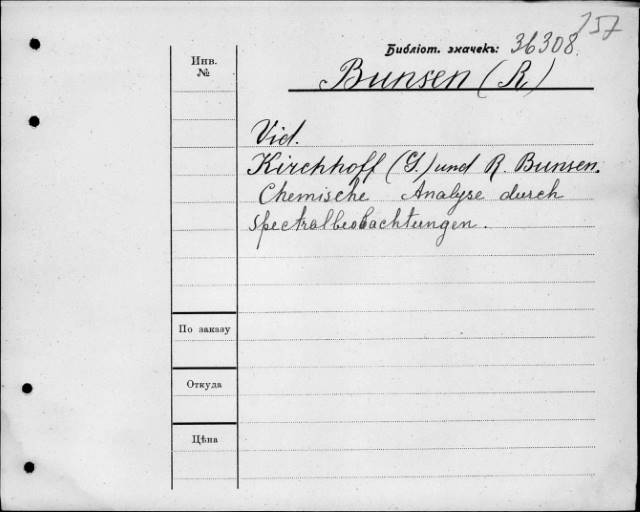 157
Библіот. значекъ: 36308.
Инв.
№
Bunsen (R.)
Vid.
Kirchhoff (G.) und R. Bunsen.
Chemische Analyse durch
Spectralbeobachtungen.
По заказу
Откуда
Цѣна